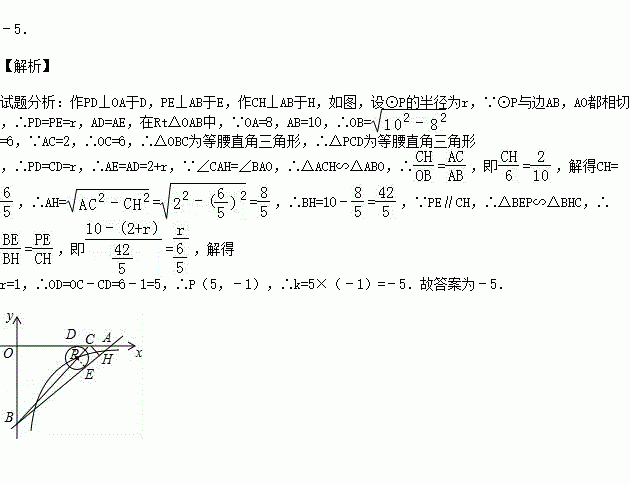 -5.
【解析】
试题分析:作PD⊥OA于D,PE⊥AB于E,作CH⊥AB于H,如图,设⊙P的半径为r,∵⊙P与边AB,AO都相切
,∴PD=PE=r,AD=AE,在Rt△OAB中,∵OA=8,AB=10,∴OB=√(10²-8²)
=6,∵AC=2,∴OC=6,∴△OBC为等腰直角三角形,∴△PCD为等腰直角三角形
,∴PD=CD=r,∴AE=AD=2+r,∵∠CAH=∠BAO,∴△ACH∽△ABO,∴CH/OB=AC/AB,即CH/6=2/10,解得CH=
6/5,∴AH=√(AC²-CH²)=√(2²-(6/5)²)=8/5,∴BH=10-8/5=42/5,∵PE∥CH,∴△BEP∽△BHC,∴
BE/BH=PE/CH,即(10-(2+r))/(42/5)=r/(6/5),解得
r=1,∴OD=OC-CD=6-1=5,∴P(5,-1),∴k=5×(-1)=-5.故答案为-5.
y
D C A
O P H x
E
B